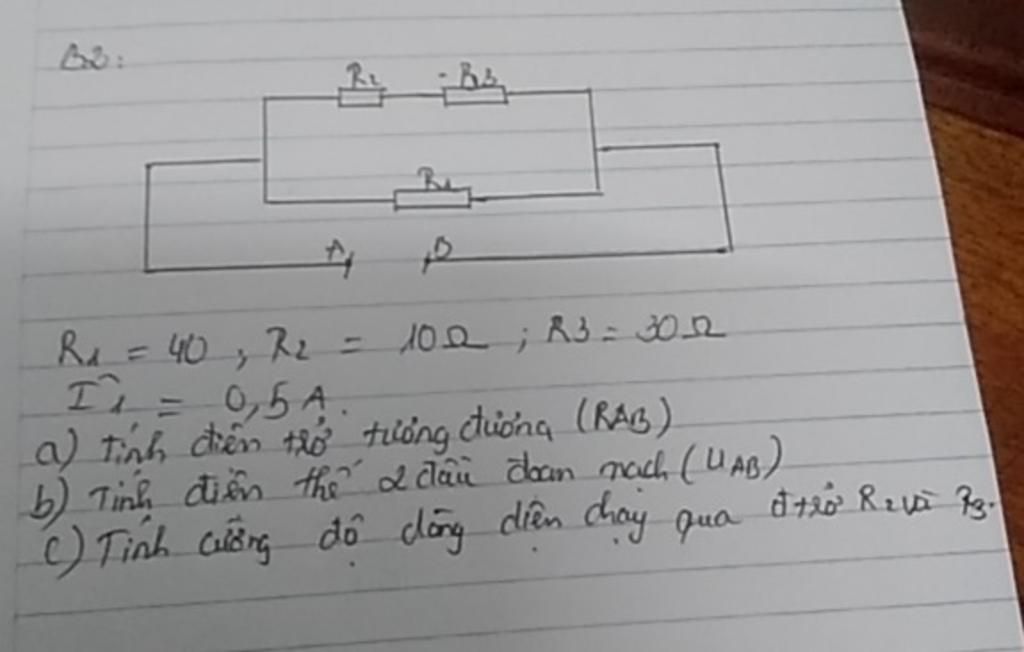 B2:
R2 R3
R1
A B
R1 = 40 , R2 = 10Ω ; R3 = 30Ω
I1 = 0,5 A.
a) Tính điện trở tương đương (RAB)
b) Tính điện thế 2 đầu đoạn mạch (UAB)
c) Tính cường độ dòng điện chạy qua đtrở R2 và R3.